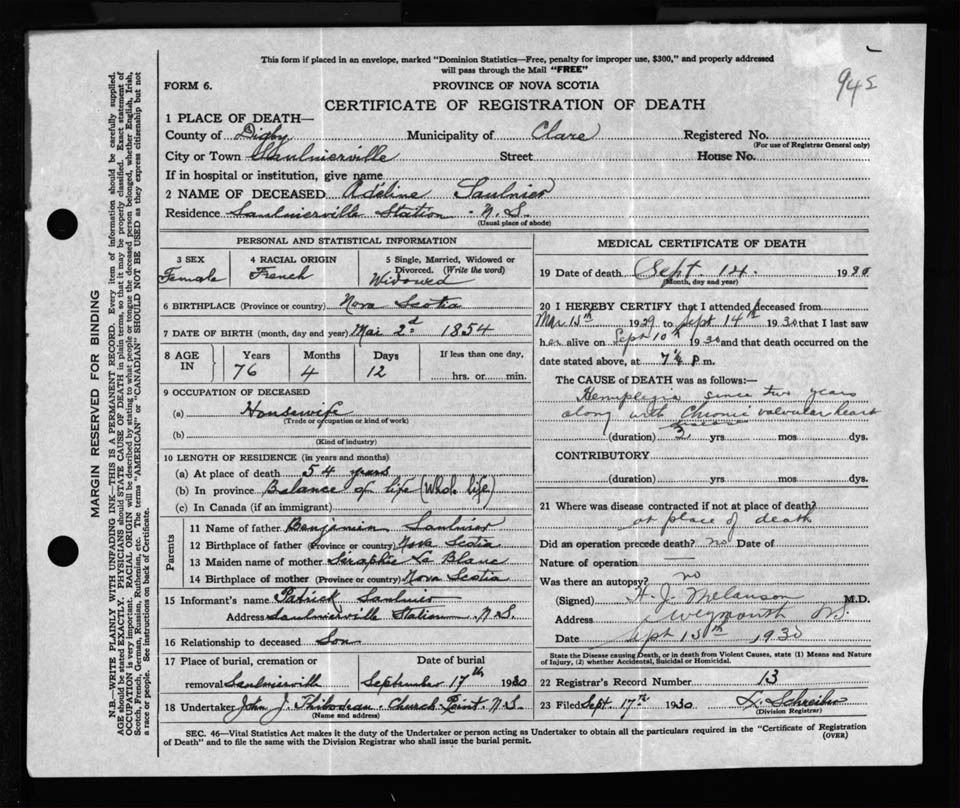 This form if placed in an envelope, marked "Dominion Statistics—Free, penalty for improper use, $300," and properly addressed
will pass through the Mail "FREE"
942
FORM 6.
PROVINCE OF NOVA SCOTIA
CERTIFICATE OF REGISTRATION OF DEATH
1 PLACE OF DEATH—
County of Digby Municipality of Clare Registered No.
(For use of Registrar General only)
City or Town Saulnierville Street House No.
If in hospital or institution, give name
2 NAME OF DECEASED Adeline Saulnier
Residence Saulnierville Station N.S.
(Usual place of abode)
PERSONAL AND STATISTICAL INFORMATION
3 SEX 4 RACIAL ORIGIN 5 Single, Married, Widowed or
Divorced. (Write the word)
Female French Widowed
6 BIRTHPLACE (Province or country) Nova Scotia
7 DATE OF BIRTH (month, day and year) Mai 2d 1854
8 AGE IN Years Months Days If less than one day,
76 4 12 hrs. or min.
9 OCCUPATION OF DECEASED
(a) Housewife
(Trade or occupation or kind of work)
(b)
(Kind of industry)
10 LENGTH OF RESIDENCE (in years and months)
(a) At place of death 54 years
(b) In province Balance of life (Whole life)
(c) In Canada (if an immigrant)
Parents
11 Name of father Benjamin Saulnier
12 Birthplace of father (Province or country) Nova Scotia
13 Maiden name of mother Seraphie La Blanc
14 Birthplace of mother (Province or country) Nova Scotia
15 Informant's name Patrick Saulnier
Address Saulnierville Station N.S.
16 Relationship to deceased Son
17 Place of burial, cremation or Date of burial
removal Saulnierville September 17th 1930
18 Undertaker John J. Thibodeau Church Point N.S.
(Name and address)
MEDICAL CERTIFICATE OF DEATH
19 Date of death Sept. 14. 1930
(Month, day and year)
20 I HEREBY CERTIFY that I attended deceased from
Mar 15th 1929 to Sept 14th 1930 that I last saw
her alive on Sept 10th 1930 and that death occurred on the
date stated above, at 7¼ P m.
The CAUSE OF DEATH was as follows:—
Hemiplegia since two years
along with Chronic valvular heart
(duration) 3 yrs mos dys.
CONTRIBUTORY
(duration) yrs. mos dys.
21 Where was disease contracted if not at place of death?
at place of death
Did an operation precede death? no Date of
Nature of operation
Was there an autopsy? no
(Signed) H. J. Melanson M.D.
Address Weymouth N.S.
Date Sept 15th 1930
State the Disease causing Death, or in death from Violent Causes, state (1) Means and Nature
of Injury, (2) whether Accidental, Suicidal or Homicidal.
22 Registrar's Record Number 13
23 Filed Sept. 17th 1930 Schreiber
(Division Registrar)
SEC. 46—Vital Statistics Act makes it the duty of the Undertaker or person acting as Undertaker to obtain all the particulars required in the "Certificate of Registration
of Death" and to file the same with the Division Registrar who shall issue the burial permit.
(OVER)
MARGIN RESERVED FOR BINDING
N.B.—WRITE PLAINLY WITH UNFADING INK—THIS IS A PERMANENT RECORD. Every item of information should be carefully supplied.
AGE should be stated EXACTLY. PHYSICIANS should STATE CAUSE OF DEATH in plain terms, so that it may be properly classified. Exact statement of
OCCUPATION is very important. RACIAL ORIGIN will be described by stating to what people or tongue the deceased person belonged, whether English, Irish,
Scotch, French, German, Russian, Ruthenian, etc. The terms "AMERICAN" or "CANADIAN" SHOULD NOT BE USED as they express citizenship but not
a race or people. See instructions on back of Certificate.